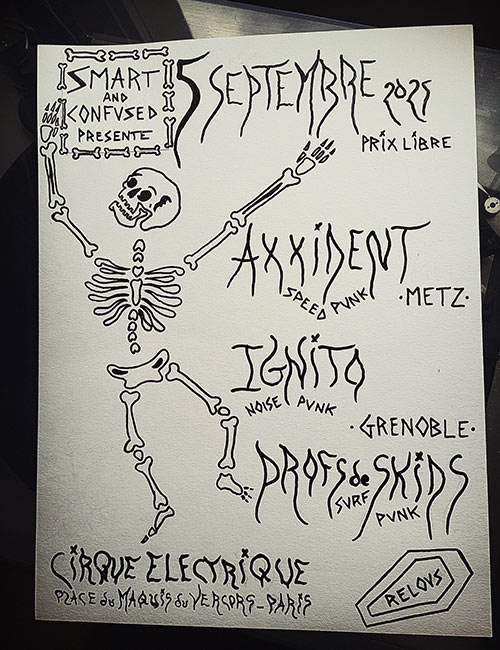 SMART
AND
CONFUSED
PRESENTE
5 SEPTEMBRE 2025
PRIX LIBRE
AXXIDENT
SPEED PUNK
·METZ·
IGNITO
NOISE PUNK
·GRENOBLE·
PROFS de SKIDS
SURF
PUNK
CIRQUE ELECTRIQUE
PLACE du MAQUIS du VERCORS-PARIS
RELOUS